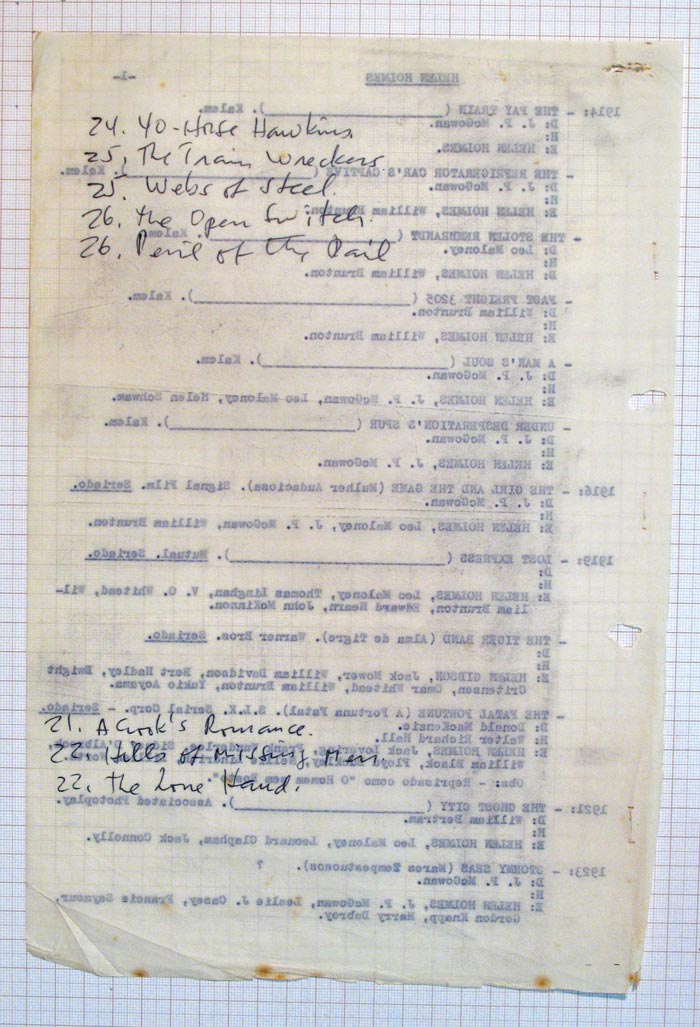 HELEN HOLMES -1-
1914: - THE PAY TRAIN (____________________). Kalem.
D: J. P. McGowan.
H:
E: HELEN HOLMES.
- THE REFRIGERATOR CAR'S CAPTIVE (____________________). Kalem.
D: J. P. McGowan.
H:
E: HELEN HOLMES, William Brunton.
- THE STOLEN REMBRANDT (____________________). Kalem.
D: Leo Maloney.
H:
E: HELEN HOLMES, William Brunton.
- FAST FREIGHT 3205 (____________________). Kalem.
D: William Brunton.
H:
E: HELEN HOLMES, William Brunton.
- A MAN'S SOUL (____________________). Kalem.
D: J. P. McGowan.
H:
E: HELEN HOLMES, J. P. McGowan, Leo Maloney, Helen Schwam.
- UNDER DESPERATION'S SPUR (____________________). Kalem.
D: J. P. McGowan.
H:
E: HELEN HOLMES, J. P. McGowan.
1916: - THE GIRL AND THE GAME (Mulher Audaciosa). Signal Film. Seriado.
D: J. P. McGowan.
H:
E: HELEN HOLMES, Leo Maloney, J. P. McGowan, William Brunton
1919: - LOST EXPRESS (____________________). Mutual. Seriado.
D:
H:
E: HELEN HOLMES, Leo Maloney, Thomas Lingham, V. O. Whitead, Wil-
liam Brunton, Edward Hearn, John McKinnon.
- THE TIGER BAND (Alma de Tigre). Warner Bros. Seriado.
D:
H:
E: HELEN GIBSON, Jack Mower, William Davidson, Bert Hadley, Dwight
Critensen, Omar Whitead, William Brunton, Yukio Aoyama.
- THE FATAL FORTUNE (A Fortuna Fatal). S.L.K. Serial Corp. - Seriado
D: Donald MacKenzie.
H: Walter Richard Hall.
E: HELEN HOLMES, Jack Levering,
William Black, Floyd
Obs: - Reprisado como "O Homem sem Rosto".
1921: - THE GHOST CITY (____________________). Associated Photoplay.
D: William Bertram.
H:
E: HELEN HOLMES, Leo Maloney, Leonard Clapham, Jack Connolly.
1923: - STORMY SEAS (Mares Tempestuosos). ?
D: J. P. McGowan.
H:
E: HELEN HOLMES, J. P. McGowan, Leslie J. Casey, Francis Seymour,
Gordon Knapp, Harry Dabroy.
24. 40-Horse Hawkins
25. The Train Wreckers
25. Webs of Steel.
26. The Open Switch.
26. Peril of the Rail
21. A Crook's Romance.
22. Hills of Missing Men.
22. The Lone Hand.